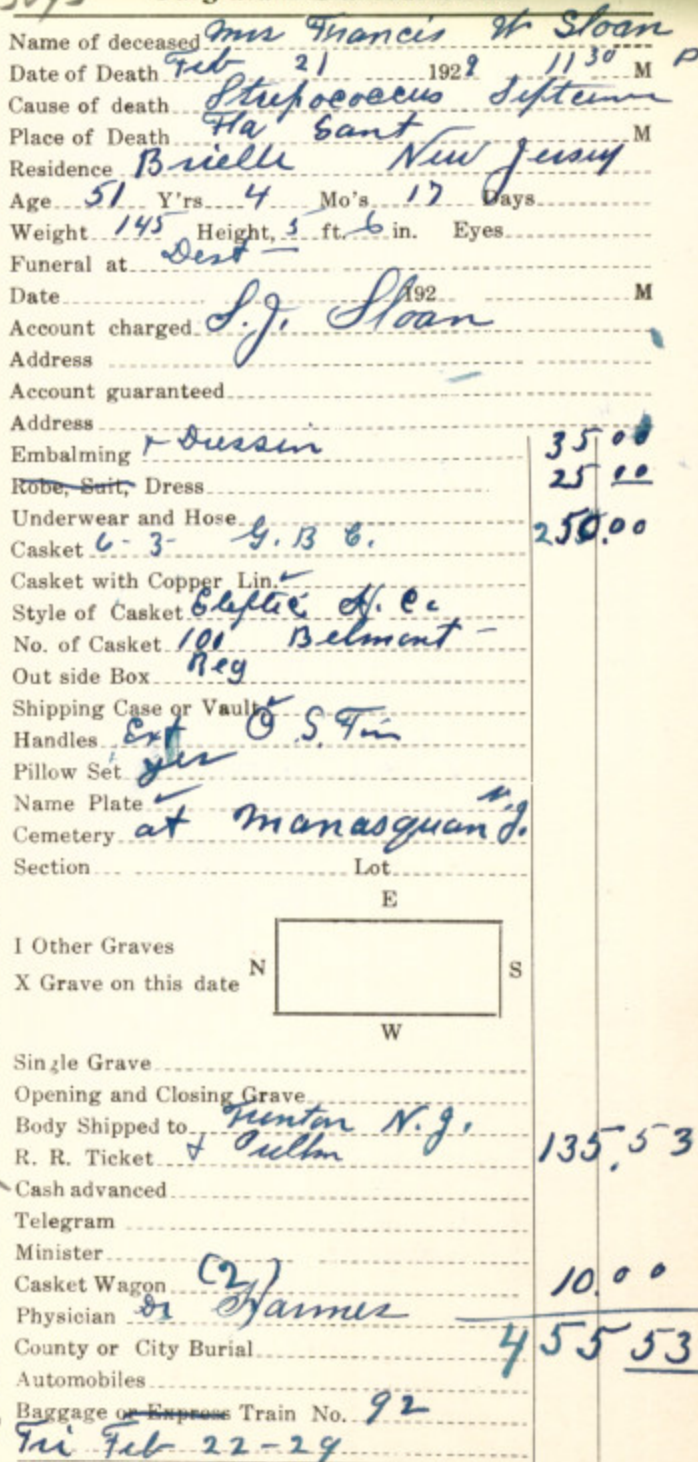 Name of deceased Mrs Francis W Sloan
Date of Death Feb 21 1929 11 30 P M
Cause of death Strepococcus Septicem
Place of Death Fla Sant M
Residence Brielle New Jersey
Age 51 Y'rs 4 Mo's 17 Days
Weight 145 Height, 5 ft. 6 in. Eyes
Funeral at Dest -
Date 192 M
Account charged S. J. Sloan
Address
Account guaranteed
Address
Embalming + Dressin 35 00
Robe, Suit, Dress 25 00
Underwear and Hose
Casket 6-3- G. B C. 250.00
Casket with Copper Lin. ✓
Style of Casket
No. of Casket 100 Belmont -
Out side Box Reg
Shipping Case or Vault ✓
Handles Ext O S. Fin
Pillow Set yes
Name Plate ✓
Cemetery at Manasquan N.J.
Section Lot
E
I Other Graves
N S
X Grave on this date
W
Single Grave
Opening and Closing Grave
Body Shipped to Trenton N. J.
R. R. Ticket + Pullm 135.53
Cash advanced
Telegram
Minister
Casket Wagon (2) 10.00
Physician Dr
County or City Burial 455 53
Automobiles
Baggage or Express Train No. 92
Fri Feb 22-29